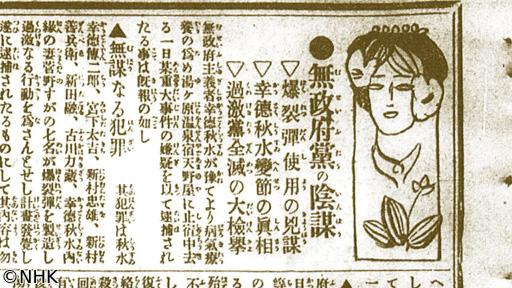 ●無政府黨の陰謀
▽爆裂彈使用の兇謀
▽幸德秋水變節の眞相
▽過激黨全滅の大檢擧
無政府主義者幸德秋水が豫てより病氣療
養の爲め湯ヶ原温泉宿天野屋に止宿中去
る一日某重大事件の嫌疑を以て逮捕され
たる事は旣報の如し
▲無謀なる犯罪 其犯罪は秋水
幸德傳二郎、宮下太吉、新村忠雄、新村
善兵衛、新田融、古川力藏、幸德秋水內
緣の妻菅野すがの七名が爆裂彈を製造し
過激なる行動を爲さんとせし計畫發覺し
遂に逮捕されたるものにして其內容は勿
©NHK